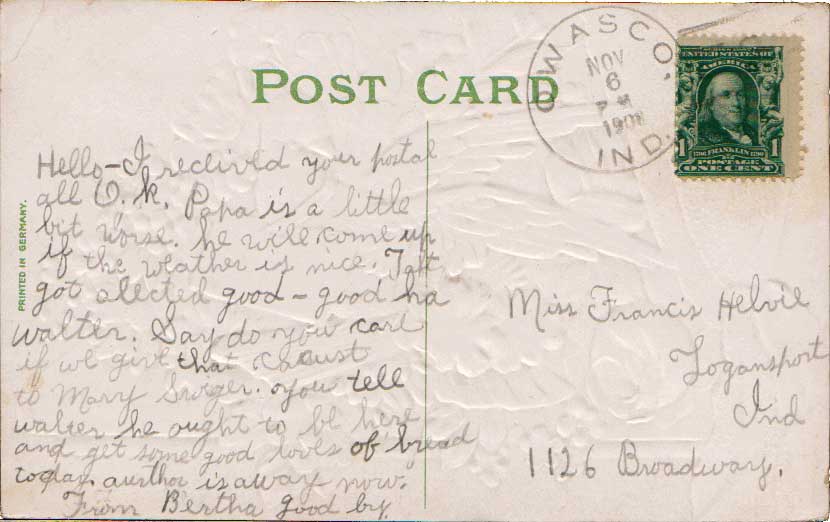 POST CARD
OWASCO, IND.
NOV
6
PM
1908
SERIES 1902
UNITED STATES OF
AMERICA
1706 FRANKLIN 1790
1 POSTAGE 1
ONE CENT
PRINTED IN GERMANY.
Hello - I recieved your postal
all O.k. Papa is a little
bit worse. he will come up
if the weather is nice. Taft
got alected good - good ha
walter. Say do you care
if we give that
to Mary. you tell
walter he ought to be here
and get some good loves of bread
today. is away now.
From Bertha good by.
Miss Francis Helvie
Logansport
Ind
1126 Broadway.